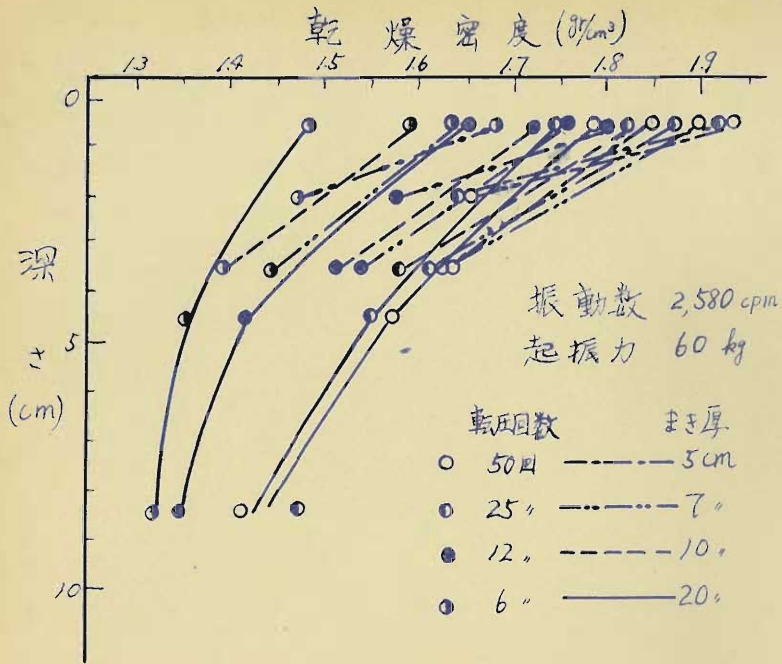 乾燥密度 (gr/cm³)
1.3 1.4 1.5 1.6 1.7 1.8 1.9
0
5
10
深さ
(cm)
振動数 2,580 cpm
起振力 60 kg
転圧回数 まき厚
50回 5cm
25〃 7〃
12〃 10〃
6〃 20〃